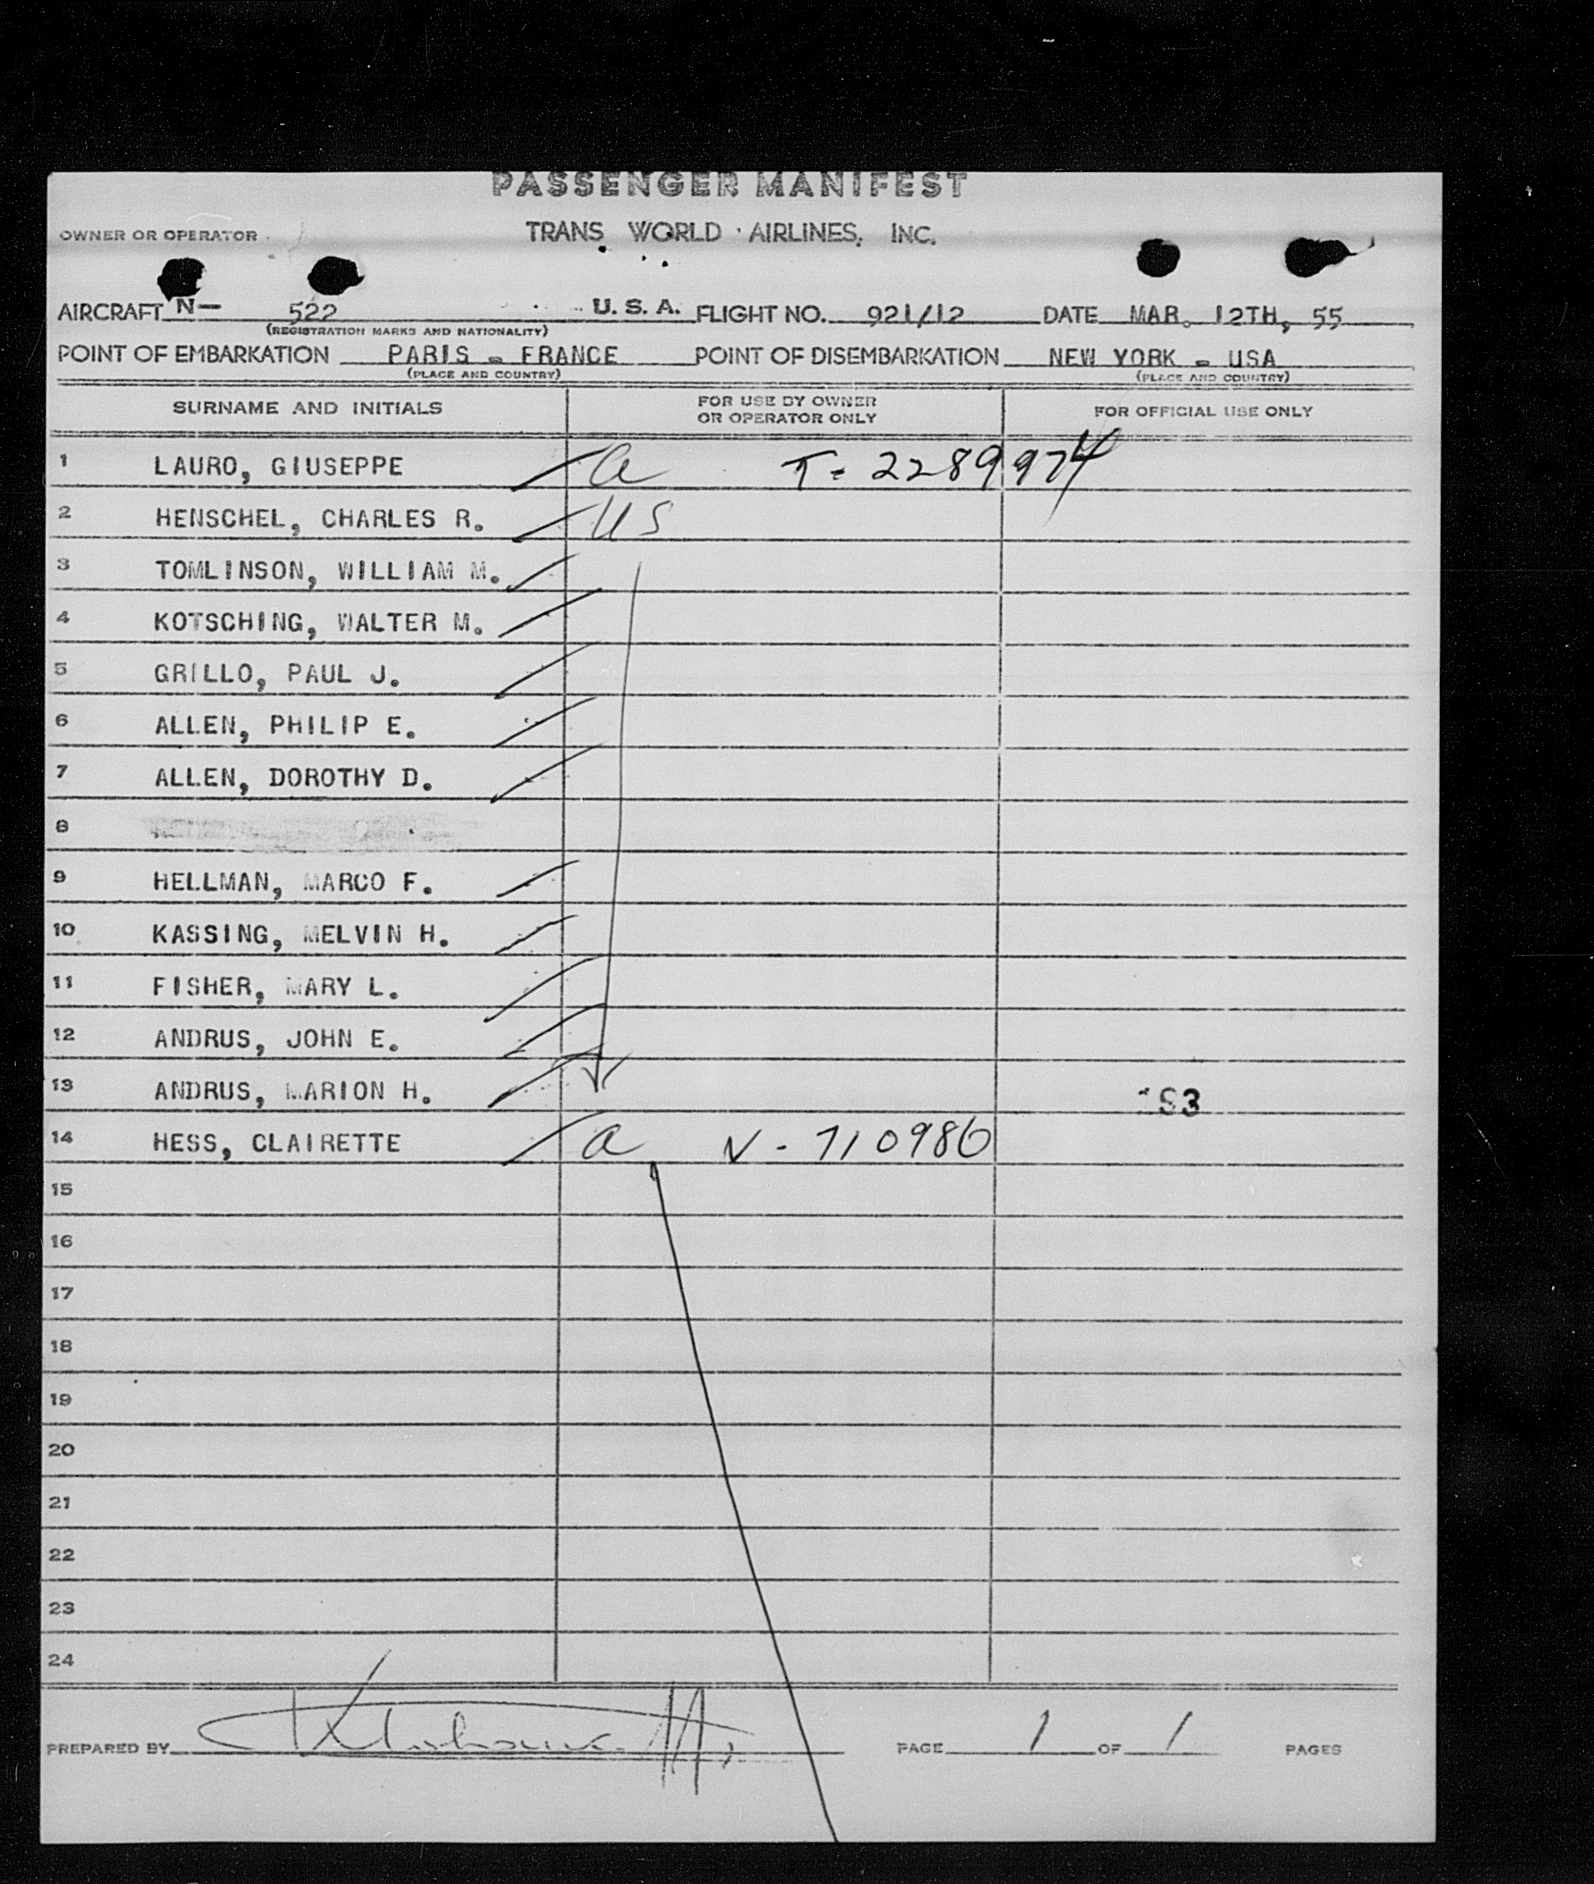 PASSENGER MANIFEST
OWNER OR OPERATOR TRANS WORLD AIRLINES, INC.
AIRCRAFT N— 522 U. S. A. FLIGHT NO. 921/12 DATE MAR. 12TH, 55
(REGISTRATION MARKS AND NATIONALITY)
POINT OF EMBARKATION PARIS - FRANCE POINT OF DISEMBARKATION NEW YORK - USA
(PLACE AND COUNTRY) (PLACE AND COUNTRY)
SURNAME AND INITIALS FOR USE BY OWNER OR OPERATOR ONLY FOR OFFICIAL USE ONLY
1 LAURO, GIUSEPPE a T- 2289974
2 HENSCHEL, CHARLES R. US
3 TOMLINSON, WILLIAM M.
4 KOTSCHING, WALTER M.
5 GRILLO, PAUL J.
6 ALLEN, PHILIP E.
7 ALLEN, DOROTHY D.
8
9 HELLMAN, MARCO F.
10 KASSING, MELVIN H.
11 FISHER, MARY L.
12 ANDRUS, JOHN E.
13 ANDRUS, MARION H.
14 HESS, CLAIRETTE a V - 710986
15
16
17
18
19
20
21
22
23
24
PREPARED BY PAGE 1 OF 1 PAGES